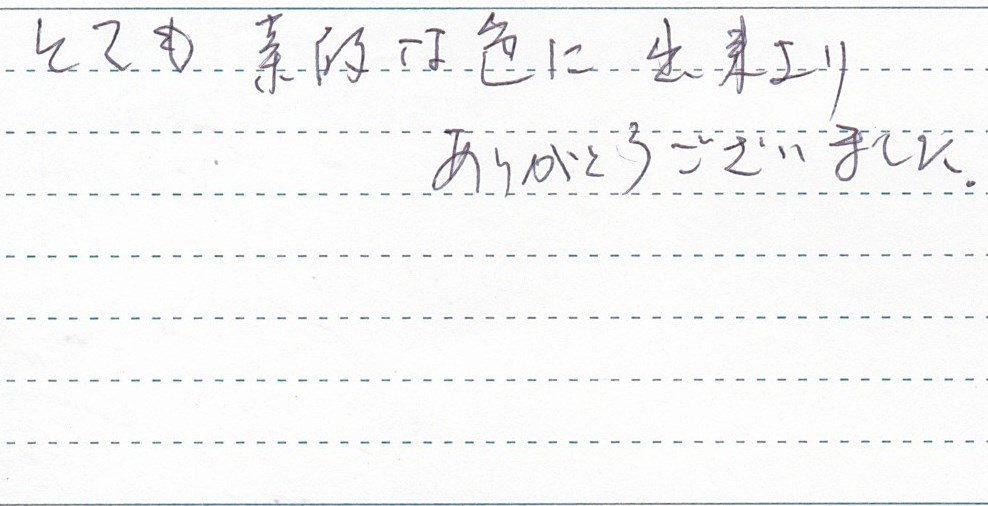 とても 素的な色に 出来上り
ありがとうございました。